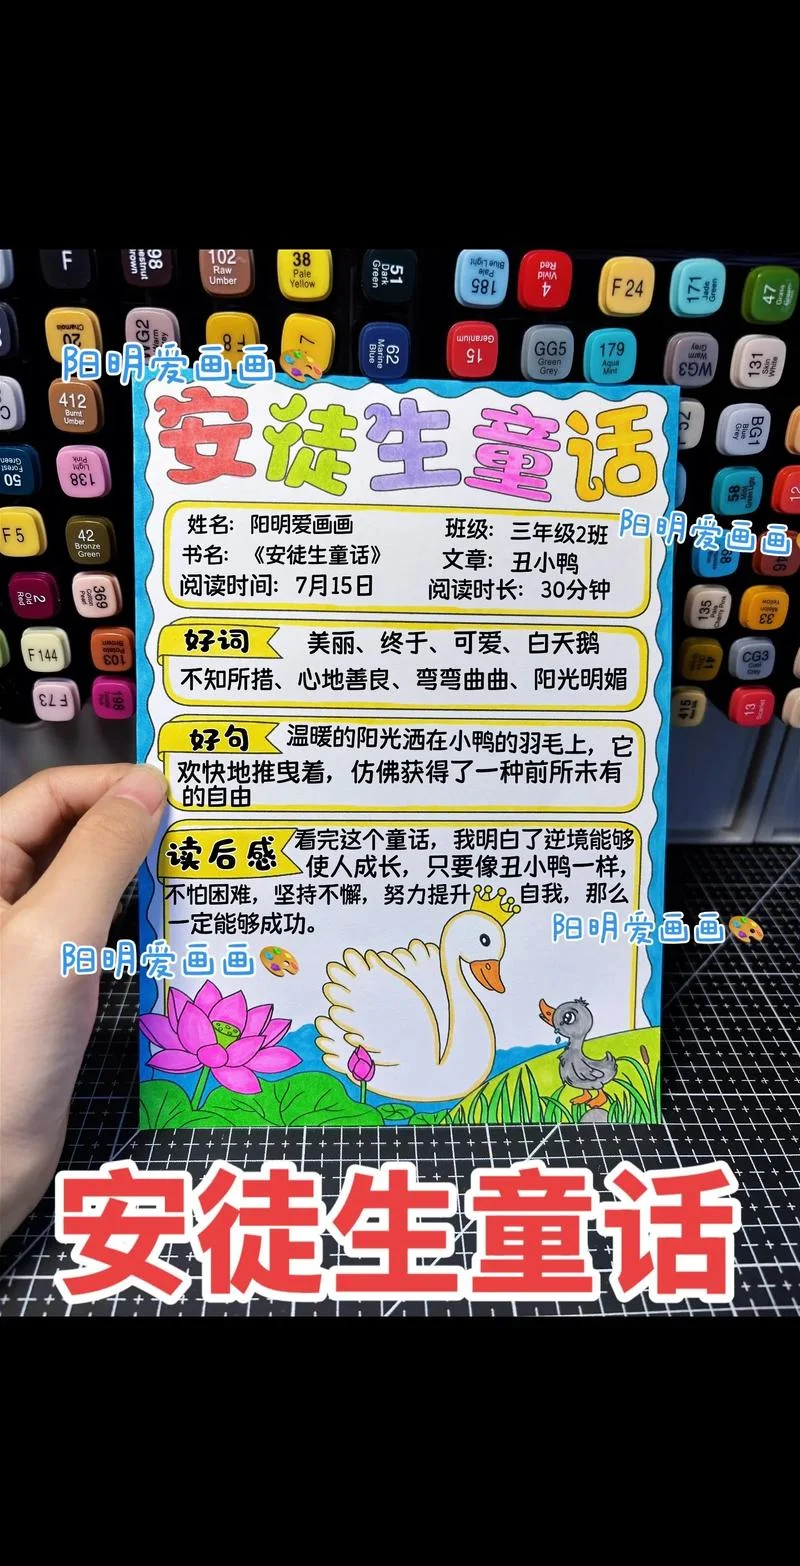 F
98
102
Raw
Umber
38
Pale
Yellow
51
Dark
Green
185
Pale
Blue Light
4
Vivid
Red
F 24
171
Jade
Green
47
20
Chamois
WG2
8
7
62
Marine
Blue
15
Geranium
GG5
Green
Grey
179
Aqua
Mint
WG3
Warm
Grey
131
Skin
White
阳明爱画画
412
Burnt
Umber
BG1
Blue
Grey
50
Forest
Green
138
Light
Pink
58
Mint
Green Light
12
F 5
42
Bronze
Green
2
Old
Red
369
135
33
Melon
Yellow
F 144
103
Potato
Brown
41
CG3
Cool
Grey
F 73
198
415
13
Scarlet
安徒生童话
姓名：阳明爱画画 班级：三年级2班
阳明爱画画
书名：《安徒生童话》 文章：丑小鸭
阅读时间：7月15日 阅读时长：30分钟
好词 美丽、终于、可爱、白天鹅
不知所措、心地善良、弯弯曲曲、阳光明媚
好句 温暖的阳光洒在小鸭的羽毛上，它
欢快地推曳着，仿佛获得了一种前所未有
的自由
读后感 看完这个童话，我明白了逆境能够
使人成长，只要像丑小鸭一样，
不怕困难，坚持不懈，努力提升自我，那么
一定能够成功。
阳明爱画画
阳明爱画画
安徒生童话